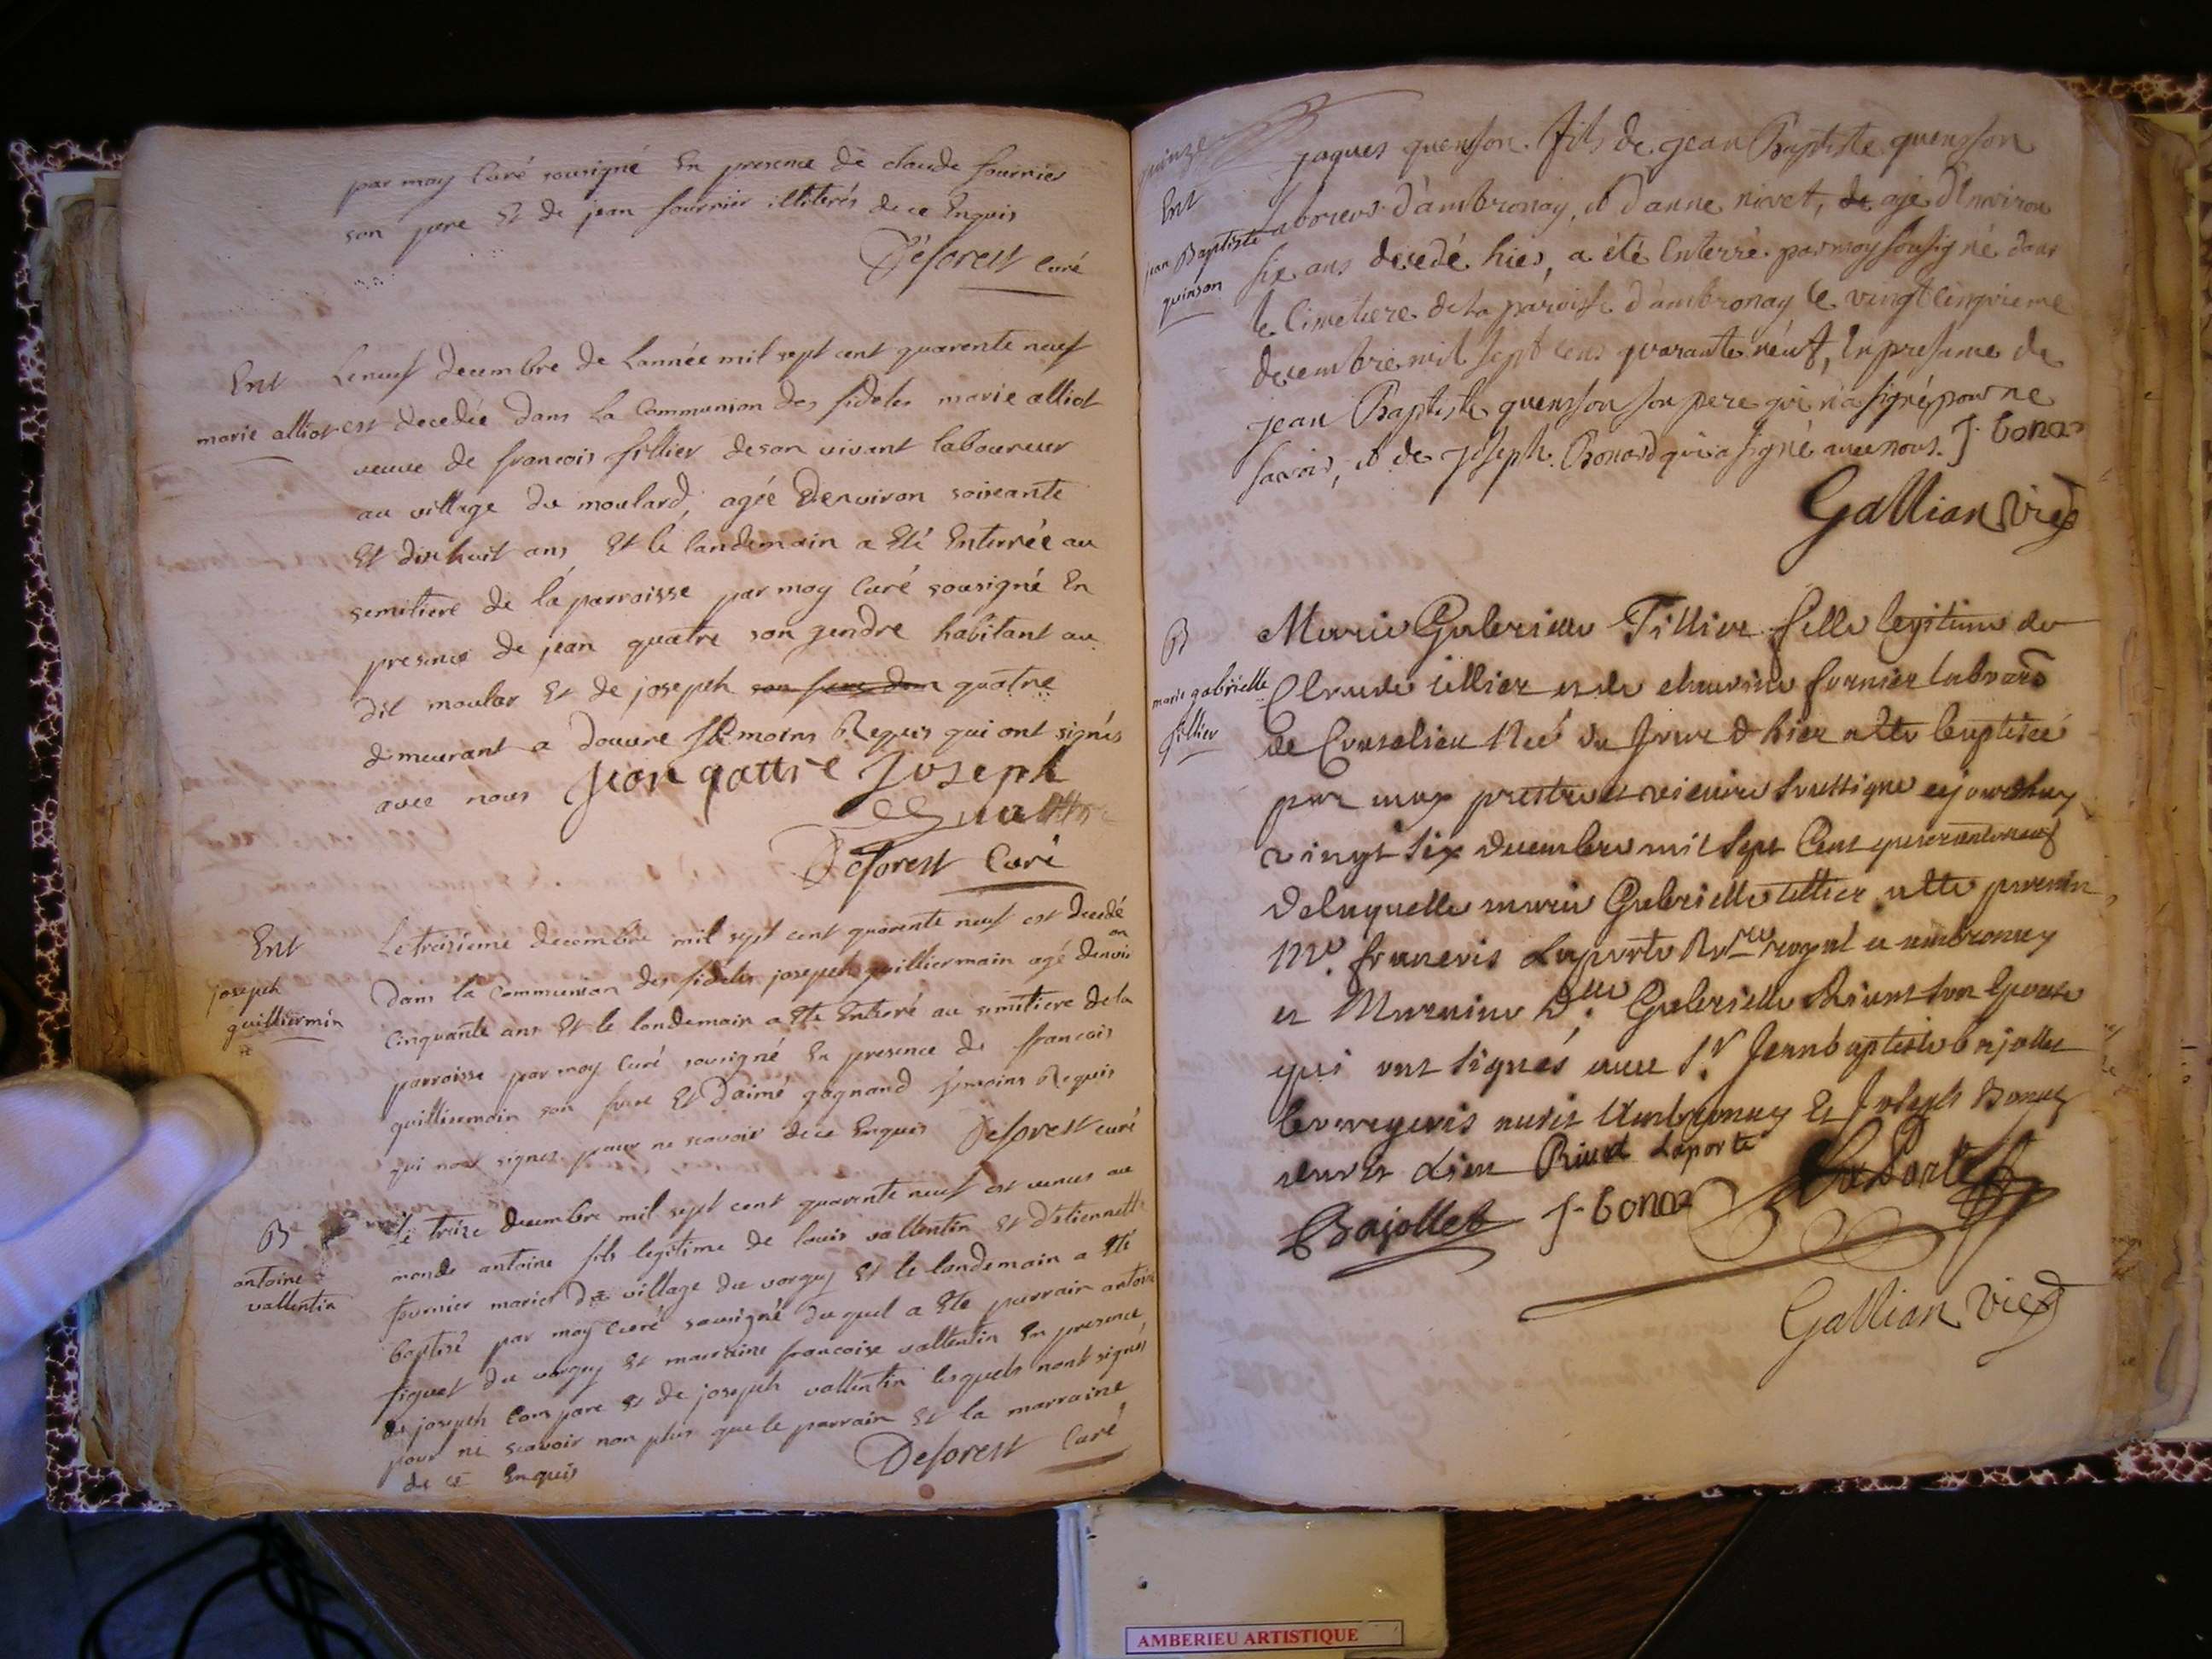 par moy Curé sousigné En presence de claude fournier
son pere Et de jean fournier illiterés de ce Enquis
Deforest Curé
Ent
marie alliot
Le neuf decembre de Lannée mil sept cent quarente neuf
est decedée dans La Communion des fideles marie alliot
veuve de francois fillier de son vivant laboureur
au village du moulard, agée Denviron soixante
Et dix huit ans Et le landemain a Eté Enterrée au
semitiere de la parroisse par moy Curé sousigné En
presence de jean quatre son gendre habitant au
dit moular Et de joseph son quatre
demeurant a douvre temoins Requis qui ont signés
avec nous jean qattre Joseph
Deforest Curé
Ent
joseph
guilliermin
Le treizieme decembre mil sept cent quarente neuf est decedé
Dans la Communion des fideles joseph guilliermain agé denviron
Cinquante ans Et le landemain a Eté Enterré au semitiere de la
parroisse par moy Curé sousigné En presence de francois
guilliermain son frere Et D'aimé gagnand temoins Requis
qui nont signes pour ne scavoir de ce Enquis Deforest curé
B
antoine
vallentin
Le treize decembre mil sept cent quarente neuf est venus au
monde antoine fils legitime de louis vallentin Et D'etiennette
fournier mariés du village du vorgey Et le landemain a Eté
baptisé par moy Curé sousigné duquel a Ete parrain antoine
fiquet du vorgey Et marraine francoise vallentin En presence
de joseph Compare et de joseph vallentin lesquels nont signés
pour ne scavoir non plus que le parrain Et la marraine
de ce Enquis
Deforest Curé
quinze
Ent
jean Baptiste
quinson
jaques quensson fils de jean Baptiste quensson
laboreur d'ambronay, et d'anne nivet, de agé d'Environ
six ans decedé hier, a été Enterré par moy sousigné dans
le Cimetiere de la paroisse d'ambronay le vingt cinquieme
decembre mil sept cens quarante néuf, En presence de
jean Baptiste quensson son pere qui n'a signé pour ne
savoir, et de joseph Bonard qui a signé avec nous. J. bonaz
Gallian vic
B
marie gabrielle
fillier
Marie Gabrielle Tillier fille legitime de
Claude tillier et de claudine fornier labvard
de Couselieu Née du Jour d'hier a été baptisée
par moy prestre et vicaire soussigné cejourdhuy
vingt six decembre mil sept Cent quarante neuf
de laquelle marie Gabrielle tillier a été parrain
Me. francois Laporte royal a ambronay
et Marraine Dlle. Gabrielle Riuat son Epouse
qui ont signés avec Sr. Jean baptiste bajollet
bourgeois audit Ambronay Et Joseph Bonaz
audit Lieu Riuat Laporte LaPorte
Bajollet J. bonaz
Gallian vic
AMBERIEU ARTISTIQUE